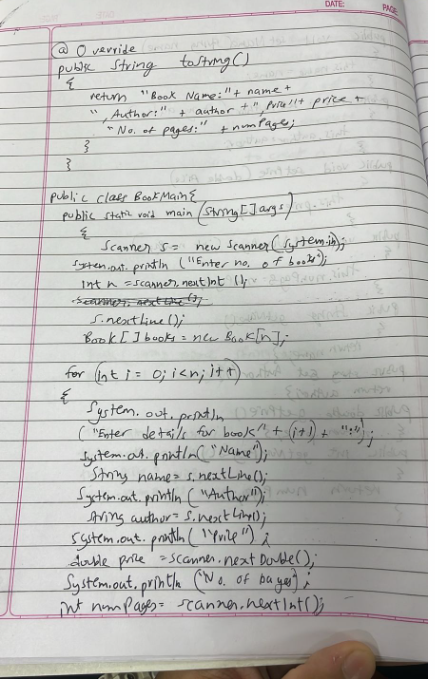 DATE:
PAGE
@ Override
public String toString()
{
return "Book Name:" + name +
", Author:" + author + " Price" + price +
"No. of pages:" + numPages;
}
}
public class BookMain{
public static void main (String[] args)
{
Scanner s = new Scanner (System.in);
System.out.println ("Enter no. of books");
int n = scanner.nextInt ();
scanner.nextLine();
s.nextLine();
Book [ ] books = new Book[n];
for (int i = 0; i<n; i++)
{
System.out.println
("Enter details for book" + (i+1) + ":");
System.out.println("Name");
String name = s.nextLine();
System.out.println ("Author");
String author = s.nextLine();
System.out.println ("Price");
double price = scanner.nextDouble();
System.out.println ("No. of pages");
int numPages = scanner.nextInt();